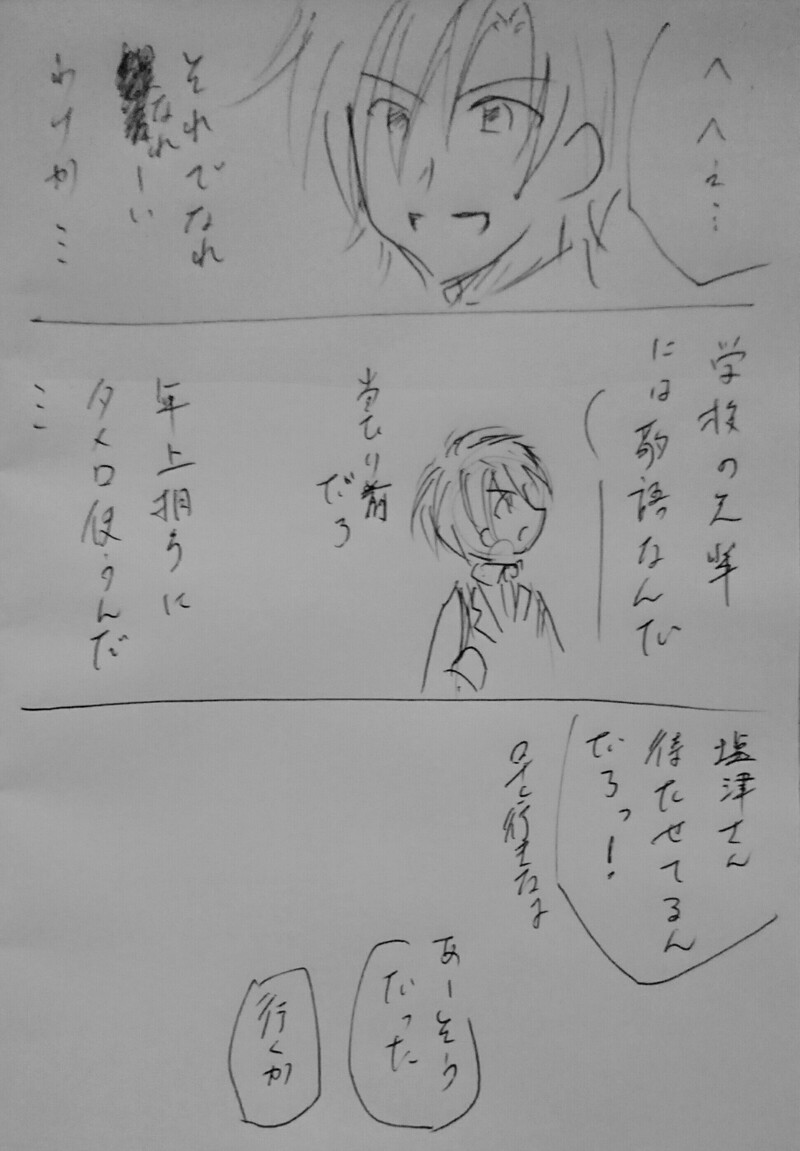 へへえ…
それでなれ
なれーい
わけか…
学校の先輩
には敬語なんだ
当たり前
だろ
年上相手に
タメ口使うんだ
…
塩津さん
待たせてるん
だろっ!
早く行きなよ
あーそう
だった
行くか